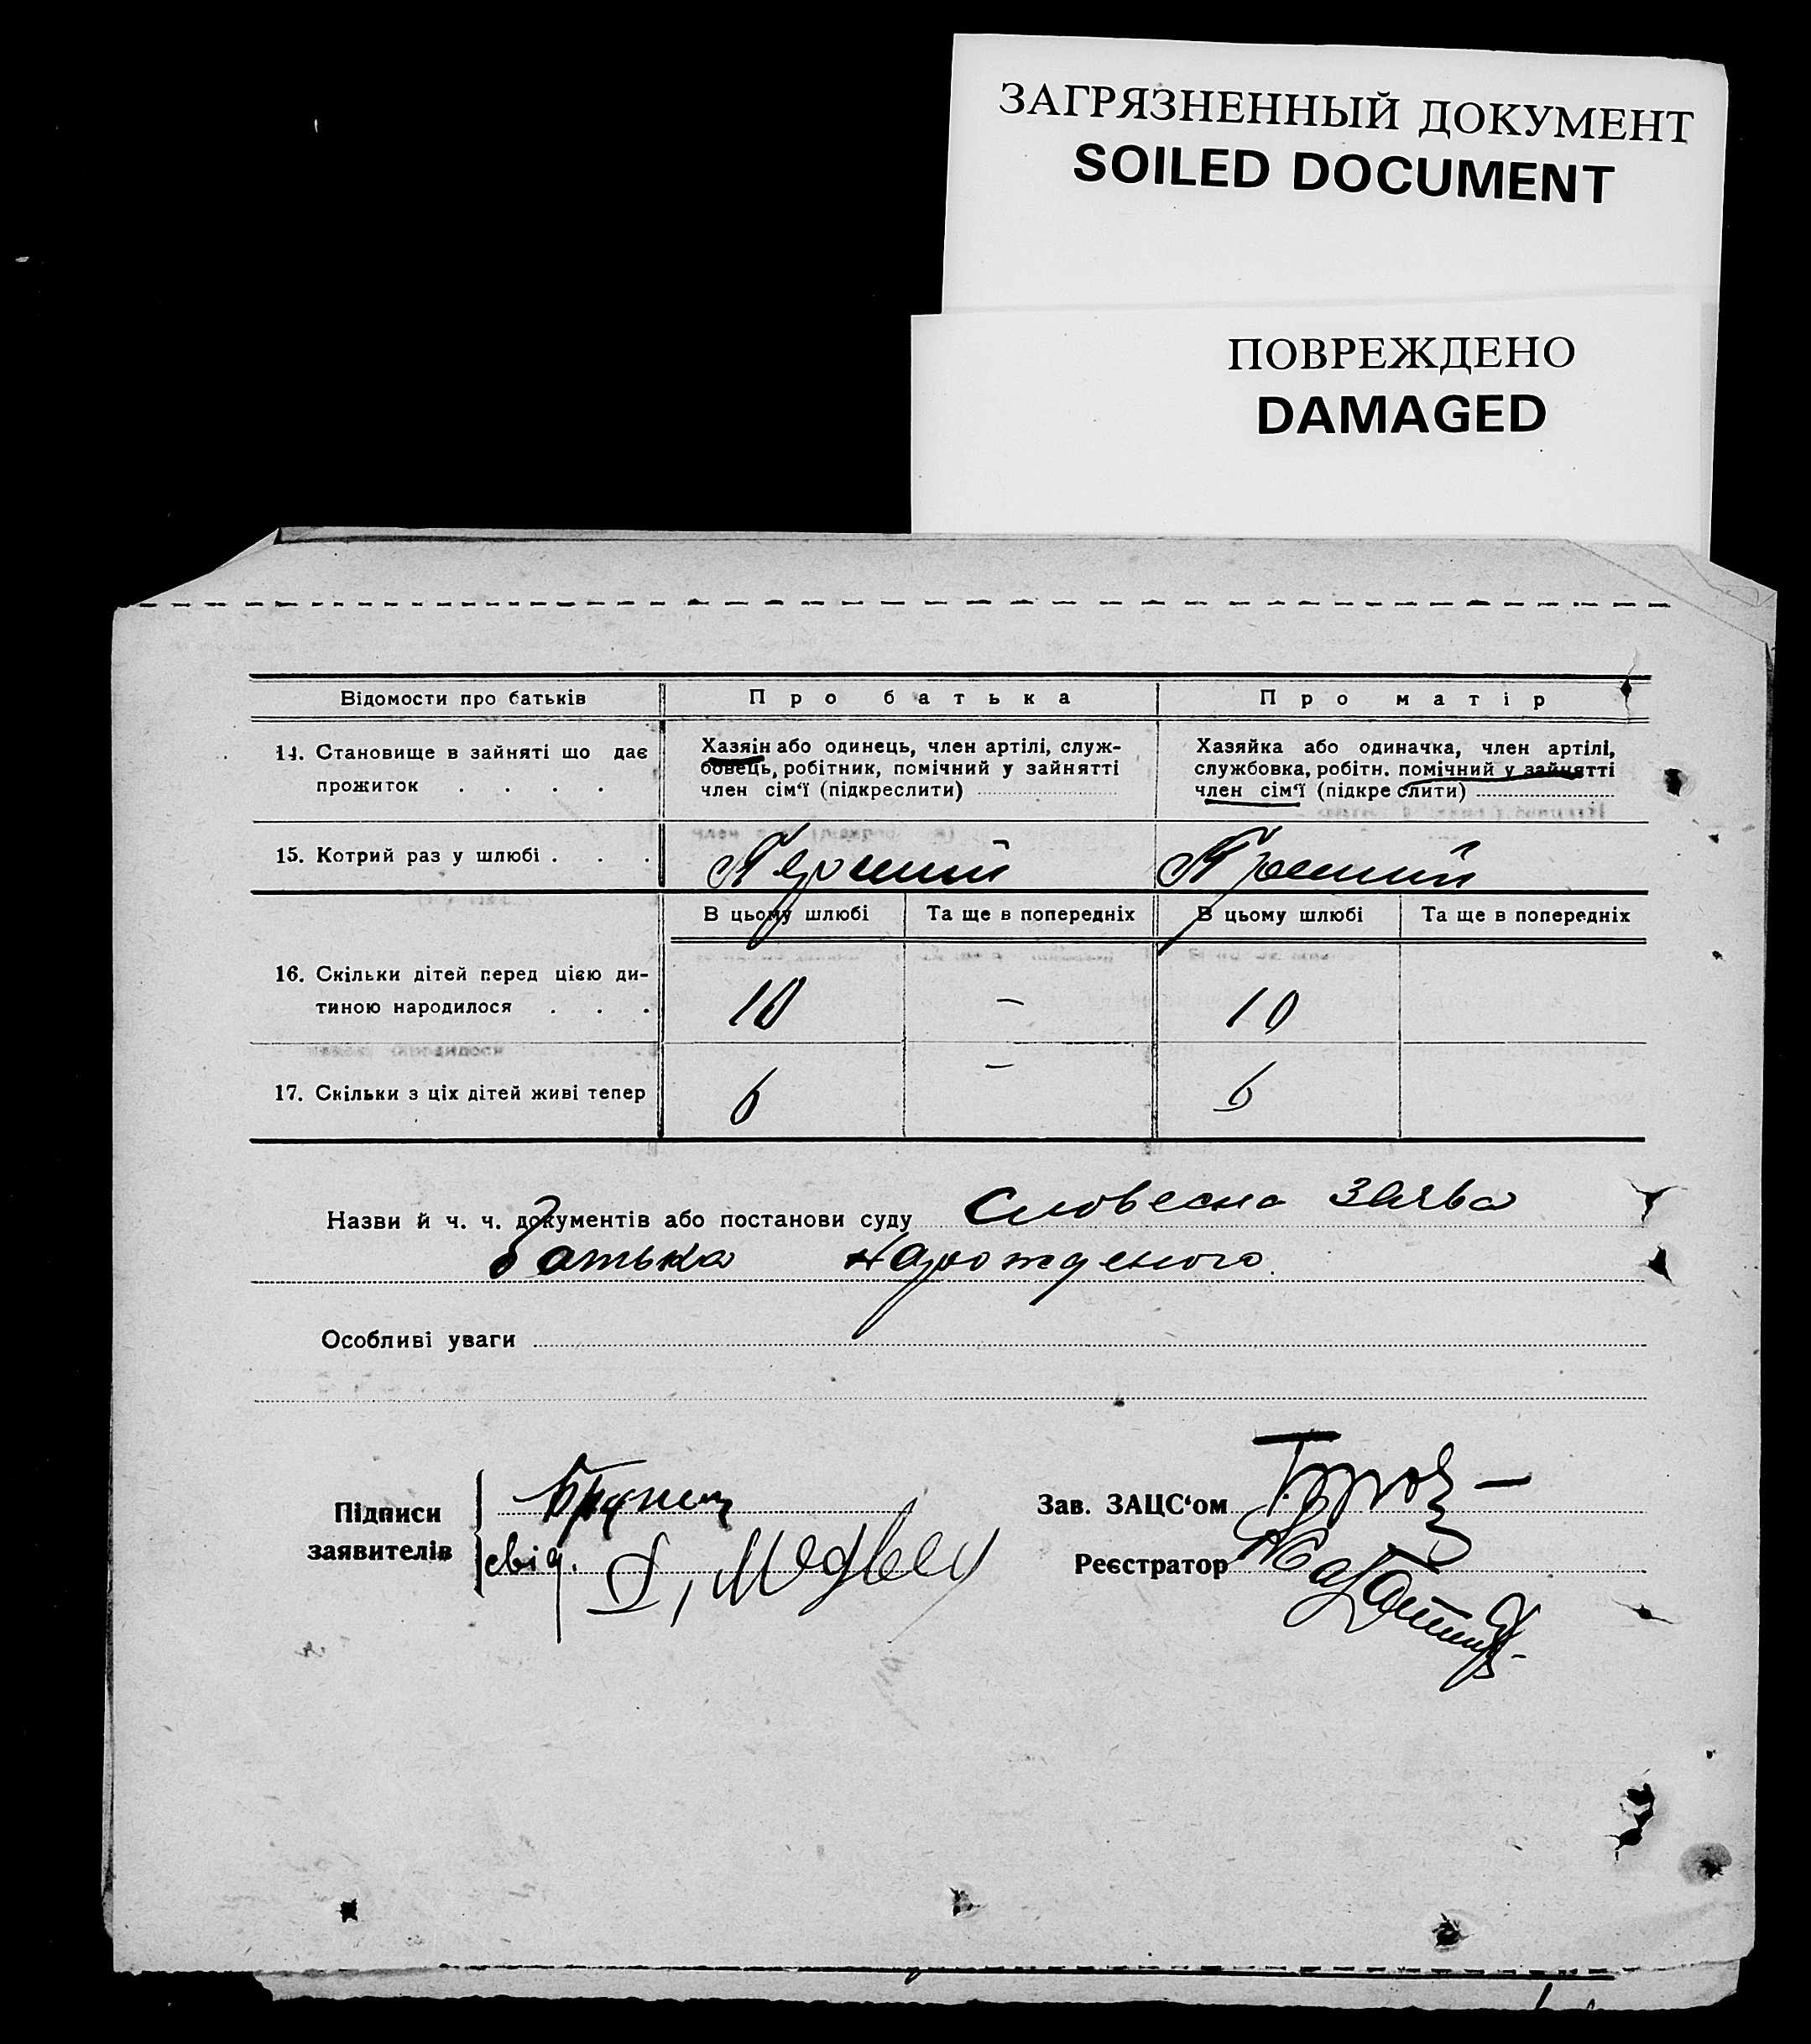 ЗАГРЯЗНЕННЫЙ ДОКУМЕНТ
SOILED DOCUMENT
ПОВРЕЖДЕНО
DAMAGED
Відомости про батьків Про батька Про матір
14. Становище в зайняті що дає прожиток . . . .
Хазяін або одинець, член артілі, служ-
бовець, робітник, помічний у зайнятті
член сім'ї (підкреслити)
Хазяйка або одиначка, член артілі,
службовка, робітн. помічний у зайнятті
член сім'ї (підкреслити)
15. Котрий раз у шлюбі . . . Перший Перший
В цьому шлюбі Та ще в попередніх В цьому шлюбі Та ще в попередніх
16. Скільки дітей перед цією ди-
тиною народилося . . . 10 — 10
17. Скільки з ціх дітей живі тепер 6 — 6
Назви й ч. ч. документів або постанови суду Словесна заява
батька нарожденого.
Особливі уваги
Підписи
заявителів
свід.
Зав. ЗАЦС'ом
Реєстратор